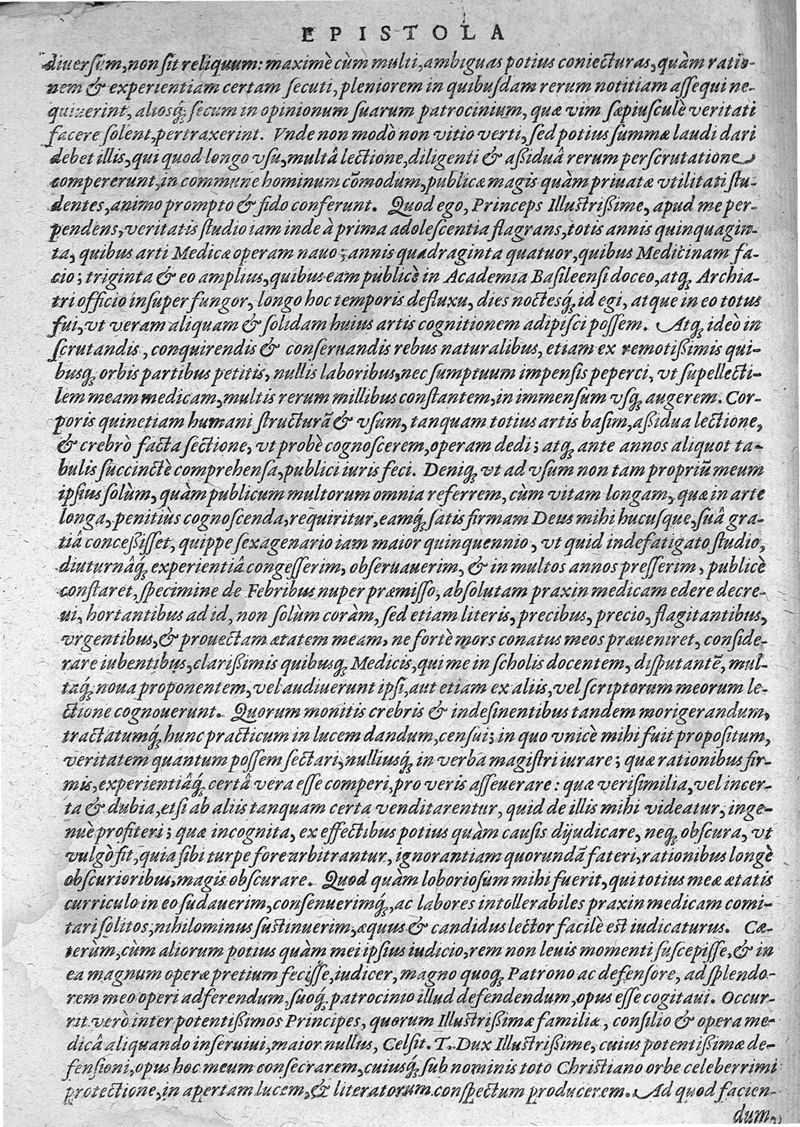 EPISTOLA
diuersum, non sit reliquum: maximè cùm multi, ambiguas potius coniecturas, quàm ratio-
nem & experientiam certam secuti, pleniorem in quibusdam rerum notitiam assequi ne-
quiuerint, aliosq́; secum in opinionum suarum patrocinium, quæ vim sæpiusculè veritati
facere solent, pertraxerint. Vnde non modò non vitio verti, sed potius summæ laudi dari
debet illis, qui quod longo vsu, multâ lectione, diligenti & aßiduâ rerum perscrutatione
compererunt, in commune hominum cõmodum, publicæ magis quàm priuatæ vtilitati stu-
dentes, animo prompto & fido conferunt. Quod ego, Princeps Illustrißime, apud me per-
pendens, veritatis studio iam inde à prima adolescentia flagrans, totis annis quinquagin-
ta, quibus arti Medicæ operam nauo; annis quadraginta quatuor, quibus Medicinam fa-
cio; triginta & eo amplius, quibus eam publicè in Academia Basileensi doceo, atq; Archia-
tri officio insuper fungor, longo hoc temporis defluxu, dies noctesq́; id egi, atque in eo totus
fui, vt veram aliquam & solidam huius artis cognitionem adipisci possem. Atq; ideò in
scrutandis, conquirendis & conseruandis rebus naturalibus, etiam ex remotißimis qui-
busq; orbis partibus petitis, nullis laboribus, nec sumptuum impensis peperci, vt supellecti-
lem meam medicam, multis rerum millibus constantem, in immensum vsq; augerem. Cor-
poris quinetiam humani structurã & vsum, tanquam totius artis basim, aßidua lectione,
& crebrò facta sectione, vt probè cognoscerem, operam dedi; atq; ante annos aliquot ta-
bulis succinctè comprehensa, publici iuris feci. Deniq; vt ad vsum non tam propriũ meum
ipsius solùm, quàm publicum multorum omnia referrem, cùm vitam longam, quæ in arte
longa, penitiùs cognoscenda, requiritur, eamq́; satis firmam Deus mihi hucusque, suâ gra-
tiâ conceßisset, quippe sexagenario iam maior quinquennio, vt quid indefatigato studio,
diuturnâq́; experientiâ congesserim, obseruauerim, & in multos annos presserim, publicè
constaret, specimine de Febribus nuper præmisso, absolutam praxin medicam edere decre-
ui, hortantibus ad id, non solùm coràm, sed etiam literis, precibus, precio, flagitantibus,
vrgentibus, & prouectam ætatem meam, ne fortè mors conatus meos præueniret, conside-
rare iubentibus, clarißimis quibusq; Medicis, qui me in scholis docentem, disputantẽ, mul-
taq́; noua proponentem, vel audiuerunt ipsi, aut etiam ex aliis, vel scriptorum meorum le-
ctione cognouerunt. Quorum monitis crebris & indesinentibus tandem morigerandum,
tractatumq́; hunc practicum in lucem dandum, censui; in quo vnicè mihi fuit propositum,
veritatem quantum possem sectari, nulliusq́; in verba magistri iurare; quæ rationibus fir-
mis, experientiâq́; certâ vera esse comperi, pro veris asseuerare: quæ verisimilia, vel incer-
ta & dubia, etsi ab aliis tanquam certa venditarentur, quid de illis mihi videatur, inge-
nuè profiteri; quæ incognita, ex effectibus potius quàm causis dijudicare, neq; obscura, vt
vulgò fit, quia sibi turpe fore arbitrantur, ignorantiam quorundã fateri, rationibus longè
obscurioribus, magis obscurare. Quod quàm loboriosum mihi fuerit, qui totius meæ ætatis
curriculo in eo sudauerim, consenuerimq́;, ac labores intollerabiles praxin medicam comi-
tari solitos, nihilominus sustinuerim, æquus & candidus lector facilè est iudicaturus. Cæ-
terùm, cùm aliorum potius quàm mei ipsius iudicio, rem non leuis momenti suscepisse, & in
ea magnum operæ pretium fecisse, iudicer, magno quoq; Patrono ac defensore, ad splendo-
rem meo operi adferendum, suoq́; patrocinio illud defendendum, opus esse cogitaui. Occur-
rit verò inter potentißimos Principes, quorum Illustrißimæ familiæ, consilio & opera me-
dicâ aliquando inseruiui, maior nullus, Celsit. T. Dux Illustrißime, cuius potentißimæ de-
fensioni, opus hoc meum consecrarem, cuiusq́; sub nominis toto Christiano orbe celeberrimi
protectione, in apertam lucem, & literatorum conspectum producerem. Ad quod facien-
dum,